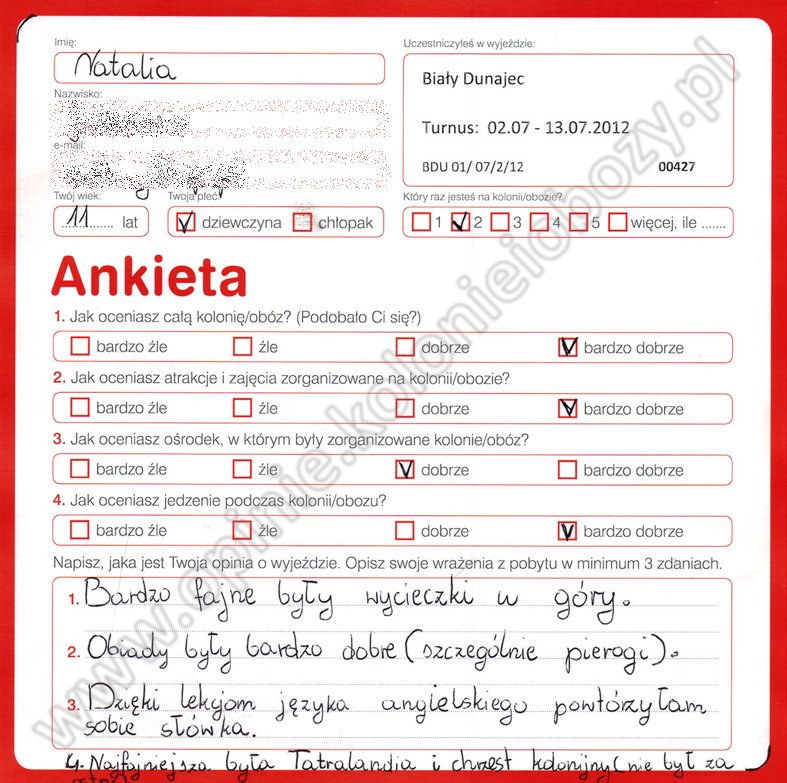 Imię:
Natalia
Uczestniczyłeś w wyjeździe:
Biały Dunajec
Turnus: 02.07 - 13.07.2012
BDU 01/ 07/2/12 00427
Nazwisko:
e-mail:
Twój wiek:
11 lat
Twoja płeć
dziewczyna chłopak
Który raz jesteś na kolonii/obozie?
1 2 3 4 5 więcej, ile .......
Ankieta
1. Jak oceniasz całą kolonię/obóz? (Podobało Ci się?)
bardzo źle źle dobrze bardzo dobrze
2. Jak oceniasz atrakcje i zajęcia zorganizowane na kolonii/obozie?
bardzo źle źle dobrze bardzo dobrze
3. Jak oceniasz ośrodek, w którym były zorganizowane kolonie/obóz?
bardzo źle źle dobrze bardzo dobrze
4. Jak oceniasz jedzenie podczas kolonii/obozu?
bardzo źle źle dobrze bardzo dobrze
Napisz, jaka jest Twoja opinia o wyjeździe. Opisz swoje wrażenia z pobytu w minimum 3 zdaniach.
1. Bardzo fajne były wycieczki w góry.
2. Obiady były bardzo dobre (szczególnie pierogi).
3. Dzięki lekcjom języka angielskiego powtórzyłam
sobie słówka.
4. Najfajniejsza była Tatralandia i chrzest kolonijny (nie był za
www.opinie.kolonieiobozy.pl